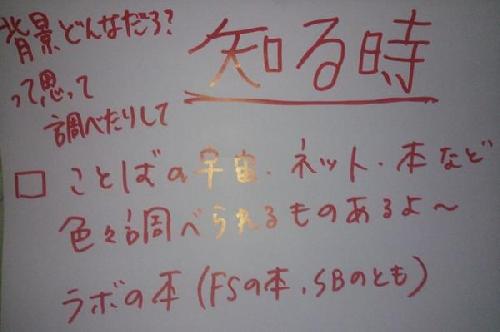 背景どんなだろ?
って思って
調べたりして
知る時
□ ことばの宇宙、ネット・本など
色々調べられるものあるよ〜
ラボの本(FSの本、SBのとも)